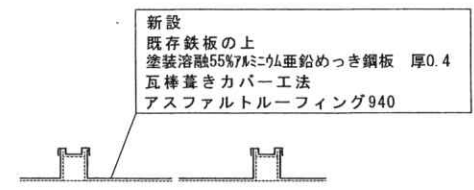 新設
既存鉄板の上
塗装溶融55%アルミニウム亜鉛めっき鋼板 厚0.4
瓦棒葺きカバー工法
アスファルトルーフィング940